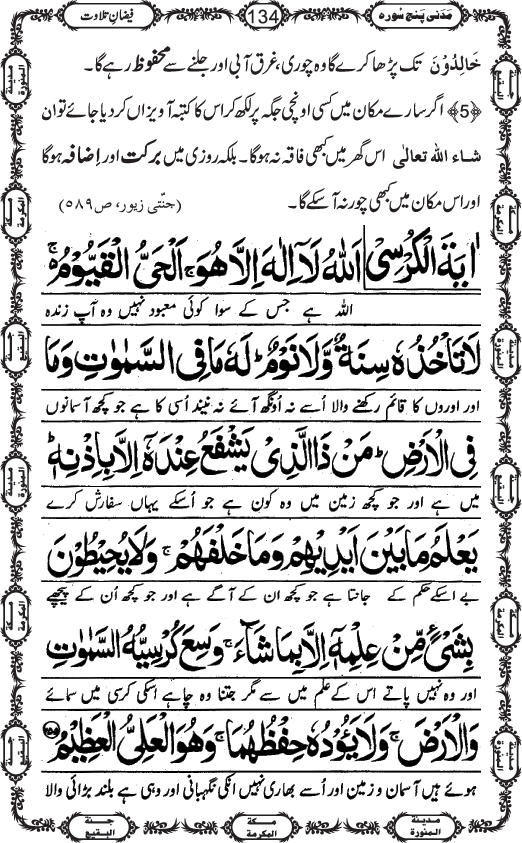 مَدَنی پنج سُورہ
134
فیضانِ تلاوت
خَالِدُوْنَ تک پڑھا کرے گا وہ چوری، غرق آبی اور جلنے سے محفوظ رہے گا۔
﴿5﴾ اگر سارے مکان میں کسی اونچی جگہ پر لکھ کر اس کا کتبہ آویزاں کر دیا جائے تو ان
شاء اللہ تعالٰی اس گھر میں کبھی فاقہ نہ ہوگا۔ بلکہ روزی میں برکت اور اِضافہ ہوگا
اور اس مکان میں کبھی چور نہ آسکے گا۔ (جنّتی زیور، ص۵۸۹)
اٰيَةُ الْكُرْسِيْ اَللّٰهُ لَاۤ اِلٰهَ اِلَّا هُوَۚ اَلْحَيُّ الْقَيُّوْمُ۬ۚ
اللہ ہے جس کے سوا کوئی معبود نہیں وہ آپ زندہ
لَا تَاْخُذُهٗ سِنَةٌ وَّلَا نَوْمٌؕ لَهٗ مَا فِي السَّمٰوٰتِ وَمَا
اور اوروں کا قائم رکھنے والا اُسے نہ اونگھ آئے نہ نیند اُسی کا ہے جو کچھ آسمانوں
فِي الْاَرْضِؕ مَنْ ذَا الَّذِيْ يَشْفَعُ عِنْدَهٗۤ اِلَّا بِاِذْنِهٖؕ
میں ہے اور جو کچھ زمین میں وہ کون ہے جو اُسکے یہاں سفارش کرے
يَعْلَمُ مَا بَيْنَ اَيْدِيْهِمْ وَمَا خَلْفَهُمْۚ وَلَا يُحِيْطُوْنَ
بے اسکے حکم کے جانتا ہے جو کچھ ان کے آگے ہے اور جو کچھ اُن کے پیچھے
بِشَيْءٍ مِّنْ عِلْمِهٖۤ اِلَّا بِمَا شَآءَۚ وَسِعَ كُرْسِيُّهُ السَّمٰوٰتِ
اور وہ نہیں پاتے اس کے علم میں سے مگر جتنا وہ چاہے اسکی کرسی میں سمائے
وَالْاَرْضَۚ وَلَا يَئُوْدُهٗ حِفْظُهُمَاۚ وَهُوَ الْعَلِيُّ الْعَظِيْمُ
ہوئے ہیں آسمان و زمین اور اُسے بھاری نہیں انکی نگہبانی اور وہی ہے بلند بڑائی والا
مدینة المنورة
مکة المکرمة
جنة البقیع